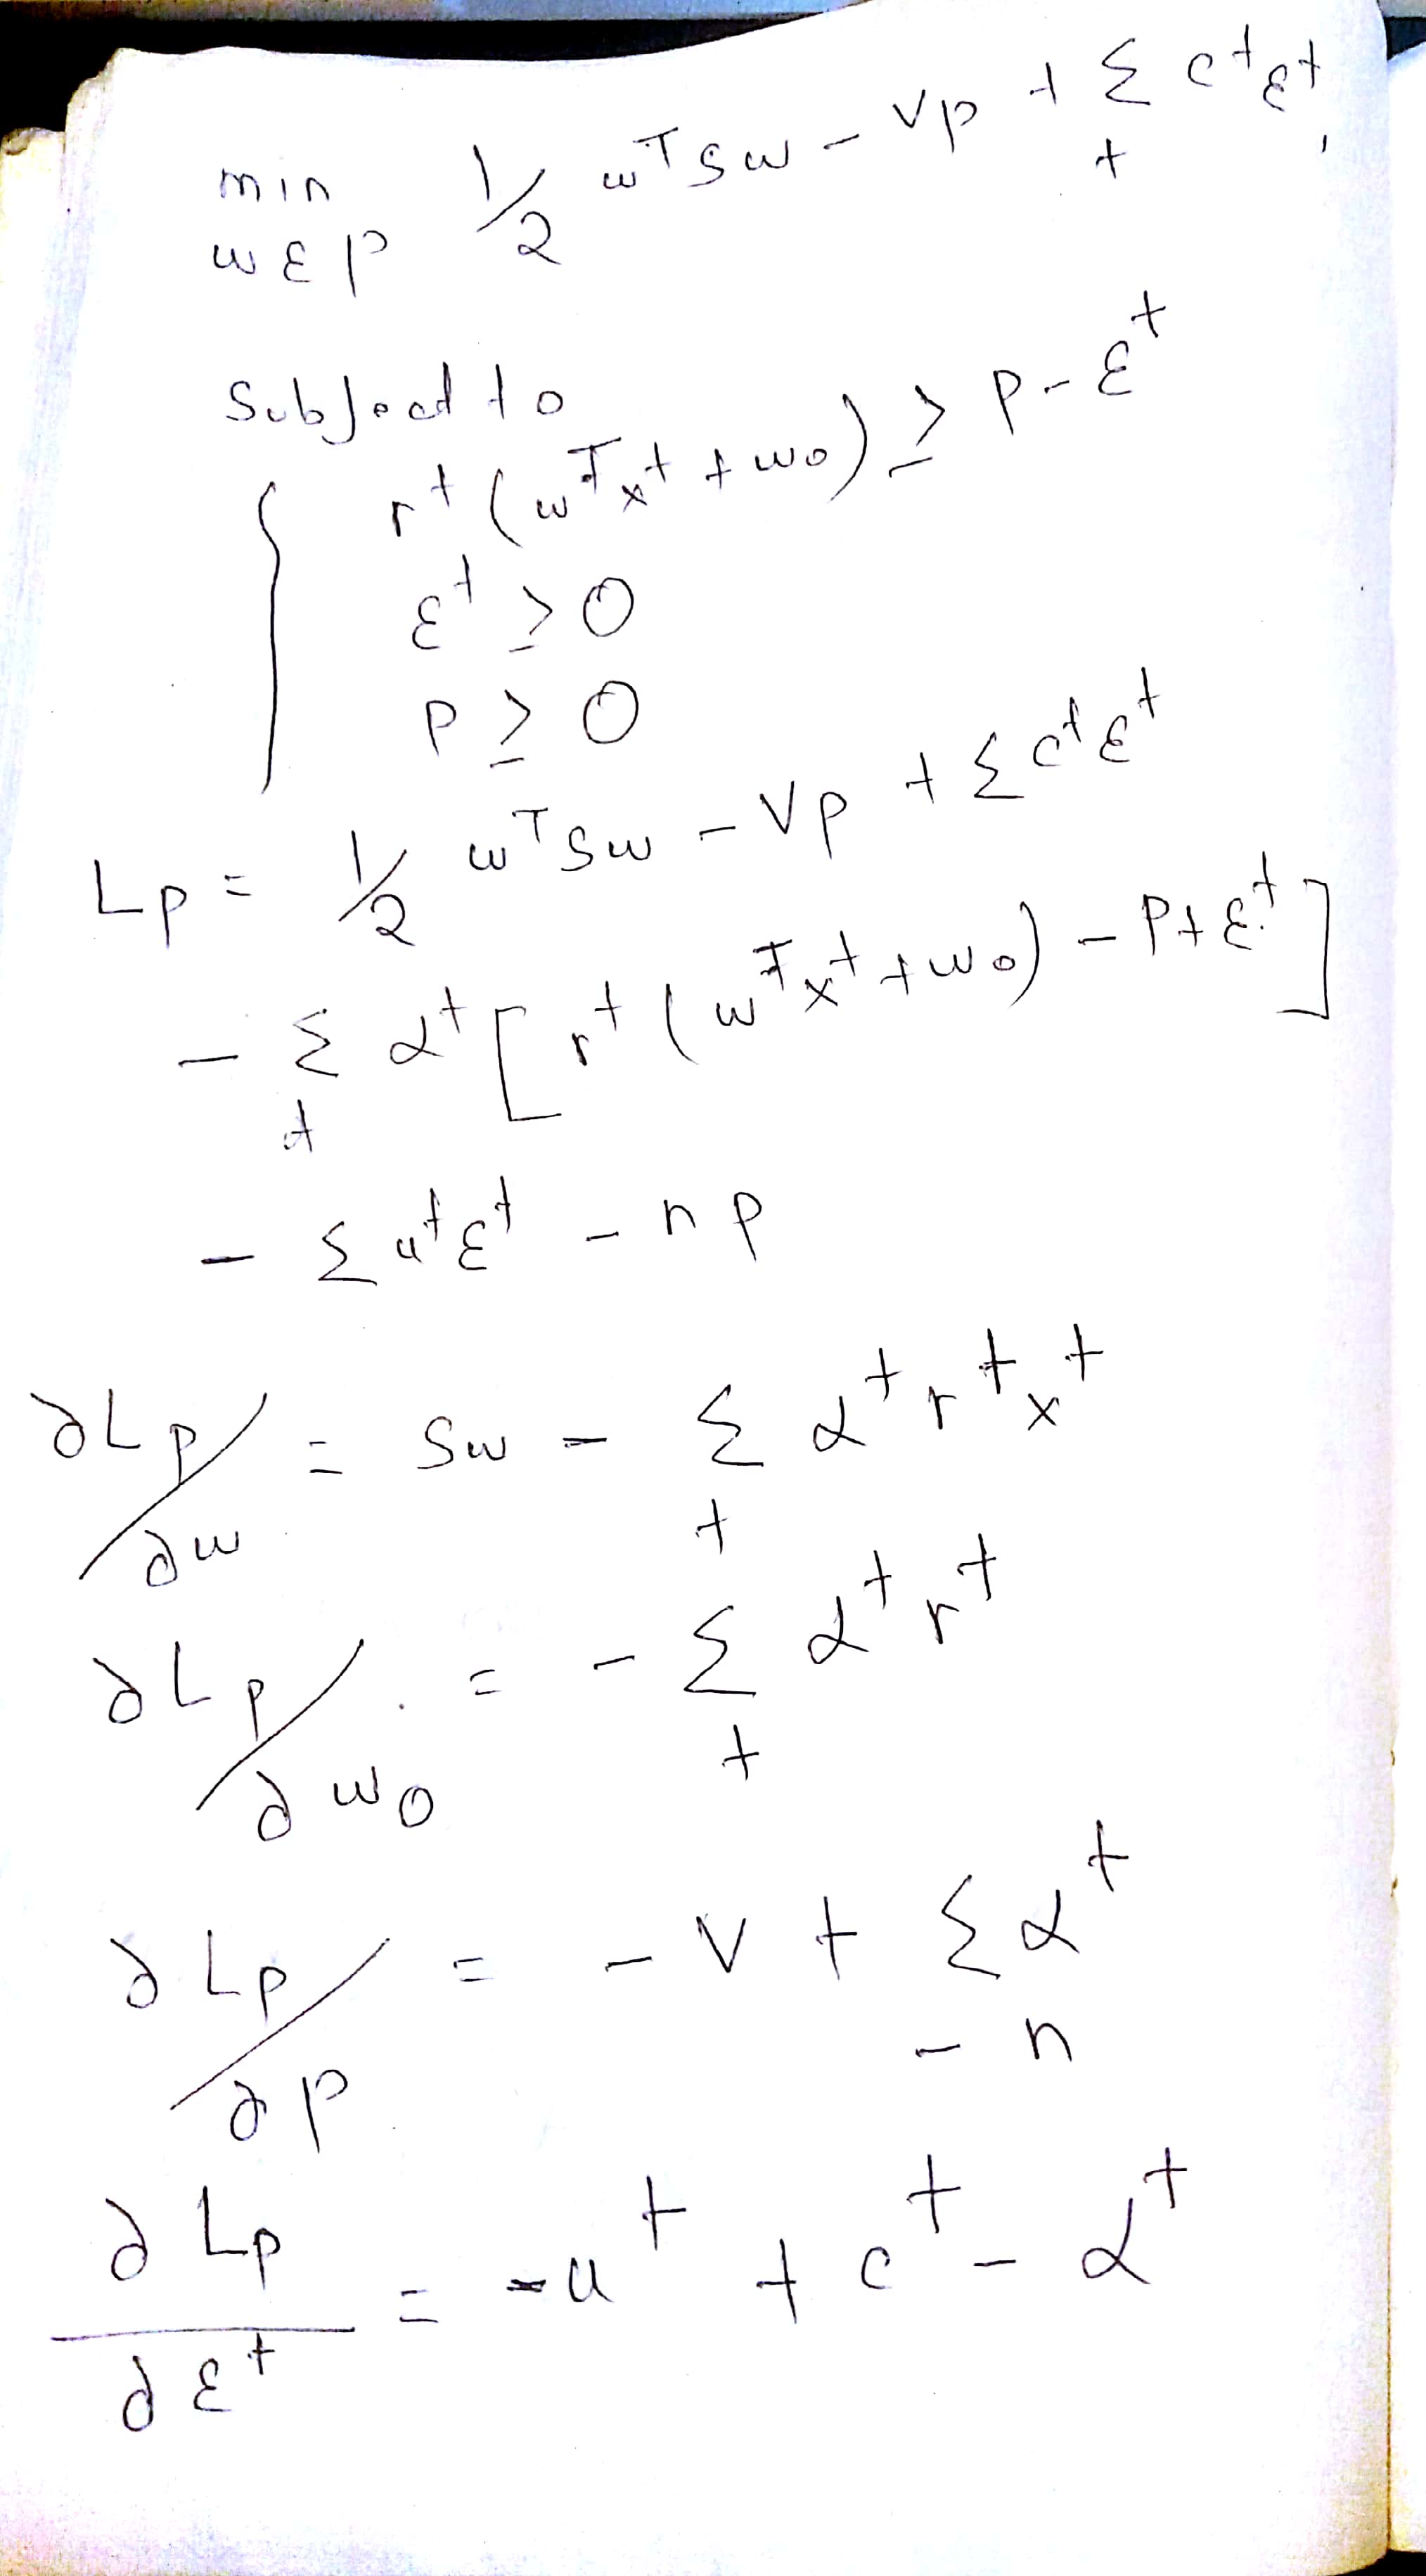 min 1/2 wᵀSw - Vp + Σ cᵗεᵗ,
w ε p t
Subject to
rᵗ(wᵀxᵗ + w0) ≥ p - εᵗ
εᵗ ≥ 0
p ≥ 0
Lp = 1/2 wᵀSw - Vp + Σ cᵗεᵗ
- Σ αᵗ [rᵗ(wᵀxᵗ + w0) - p + εᵗ]
t
- Σ uᵗεᵗ - np
∂Lp/∂w = Sw - Σ αᵗrᵗxᵗ
t
∂Lp/∂w0 = - Σ αᵗrᵗ
t
∂Lp/∂p = - V + Σ αᵗ
- n
∂Lp/∂εᵗ = -uᵗ + cᵗ - αᵗ